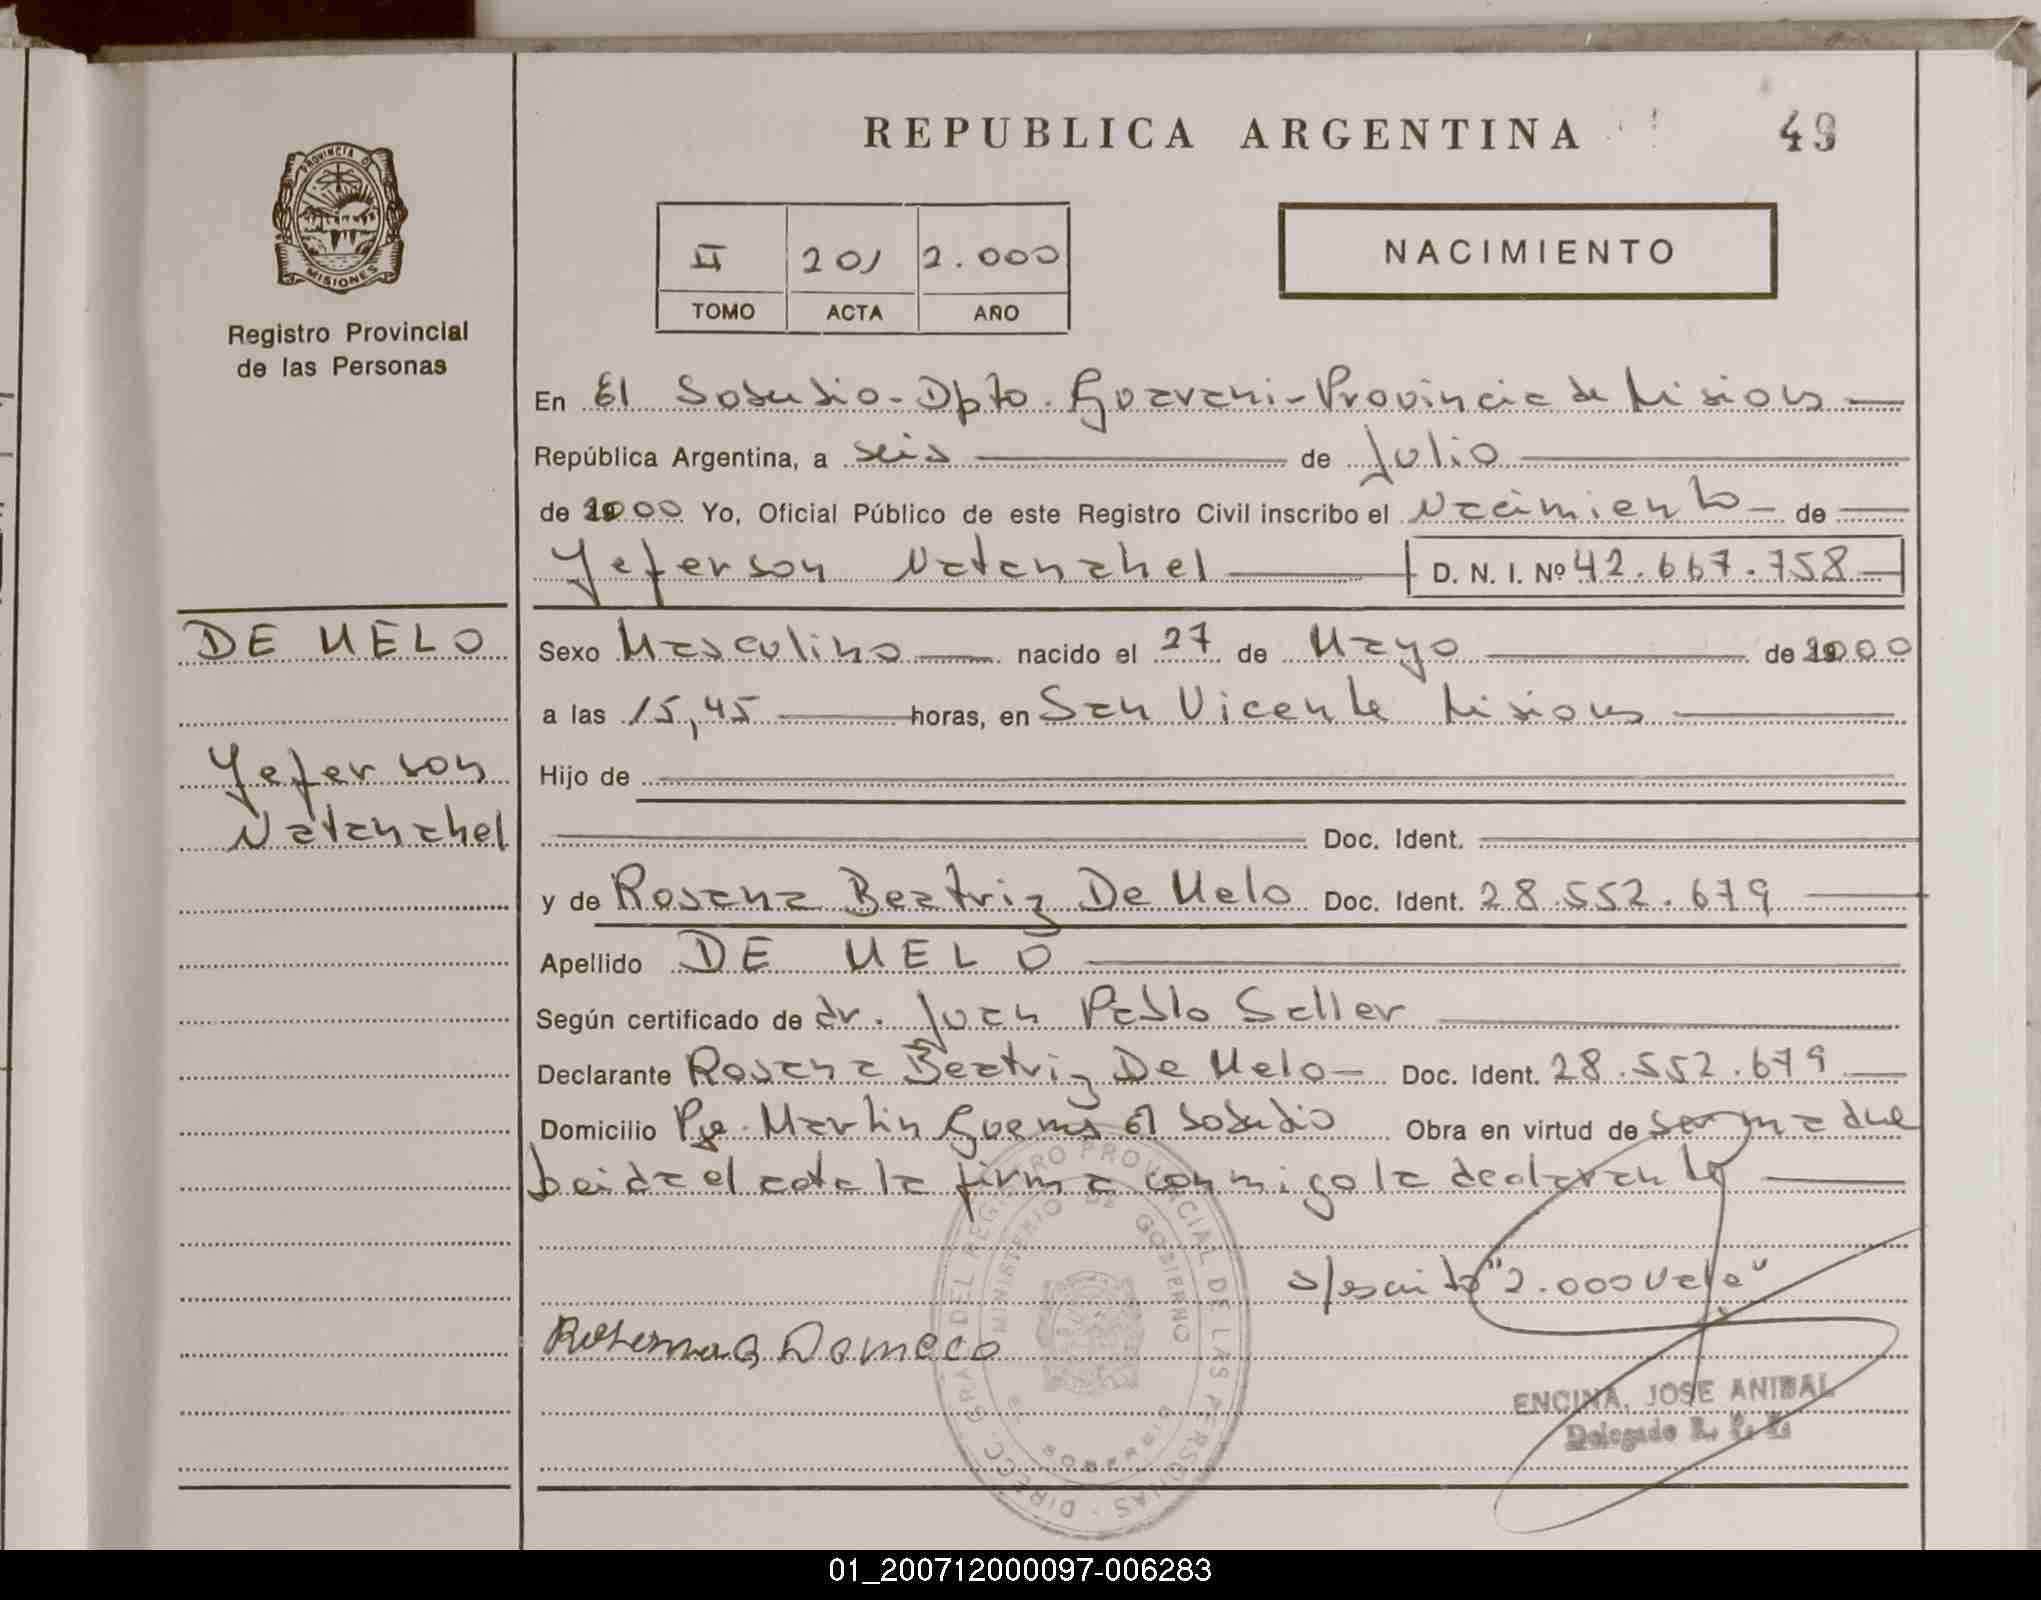 REPUBLICA ARGENTINA
49
PROVINCIA D
MISIONES
Registro Provincial
de las Personas
II 201 2.000
TOMO ACTA AÑO
NACIMIENTO
En El Soberbio - Dpto. Guarani - Provincia de Misiones
República Argentina, a seis de Julio
de 2000 Yo, Oficial Público de este Registro Civil inscribo el Nacimiento de
Yeferson Natanahel D. N. I. Nº 42.667.758
DE MELO
Yeferson
Natanahel
Sexo Masculino nacido el 27 de Mayo de 2000
a las 15,45 horas, en San Vicente Misiones
Hijo de
Doc. Ident.
y de Rosana Beatriz De Melo Doc. Ident. 28.552.679
Apellido DE MELO
Según certificado de dr. Juan Pablo Saller
Declarante Rosana Beatriz De Melo Doc. Ident. 28.552.679
Domicilio Pje. Martin Guemes El Soberbio Obra en virtud de ser madre
Leida el acta la firma conmigo la declarante
s/escrito "2.000 Vale"
DIRECC. GRAL DEL REGISTRO PROVINCIAL DE LAS PERSONAS
MINISTERIO DE GOBIERNO
EL SOBERBIO
ENCINA, JOSE ANIBAL
Delegado R. P. P.
01_200712000097-006283